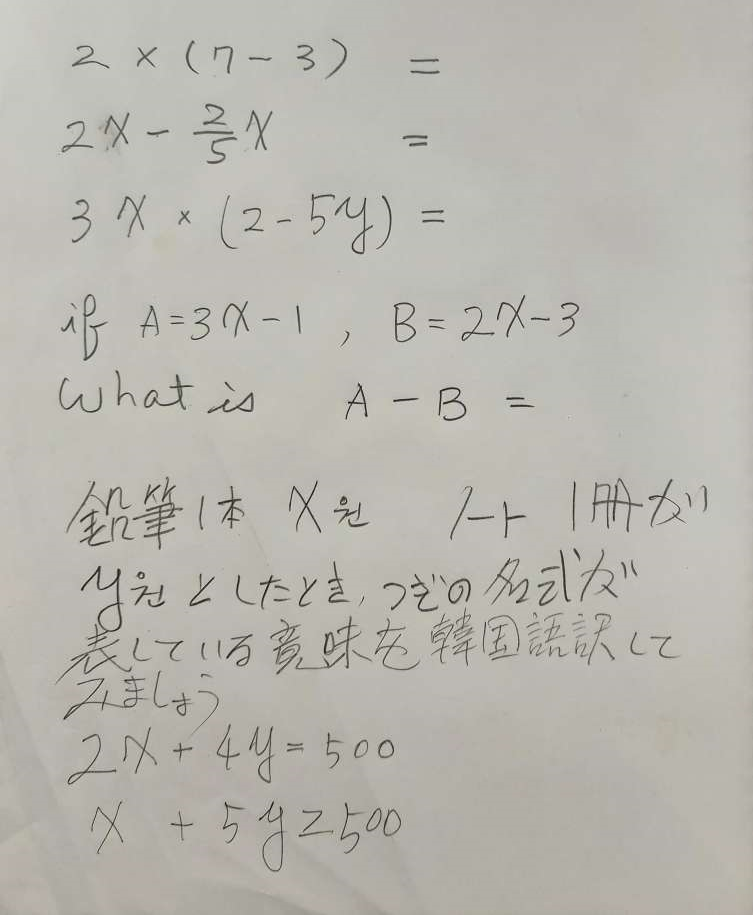 2 × (7 - 3) =
2x - 2/5 x =
3x × (2 - 5y) =
if A = 3x - 1 , B = 2x - 3
What is A - B =
鉛筆1本 x원 ノート 1冊が
y원としたとき, つぎの各式が
表している意味を韓国語訳して
みましょう
2x + 4y = 500
x + 5y ≥ 500